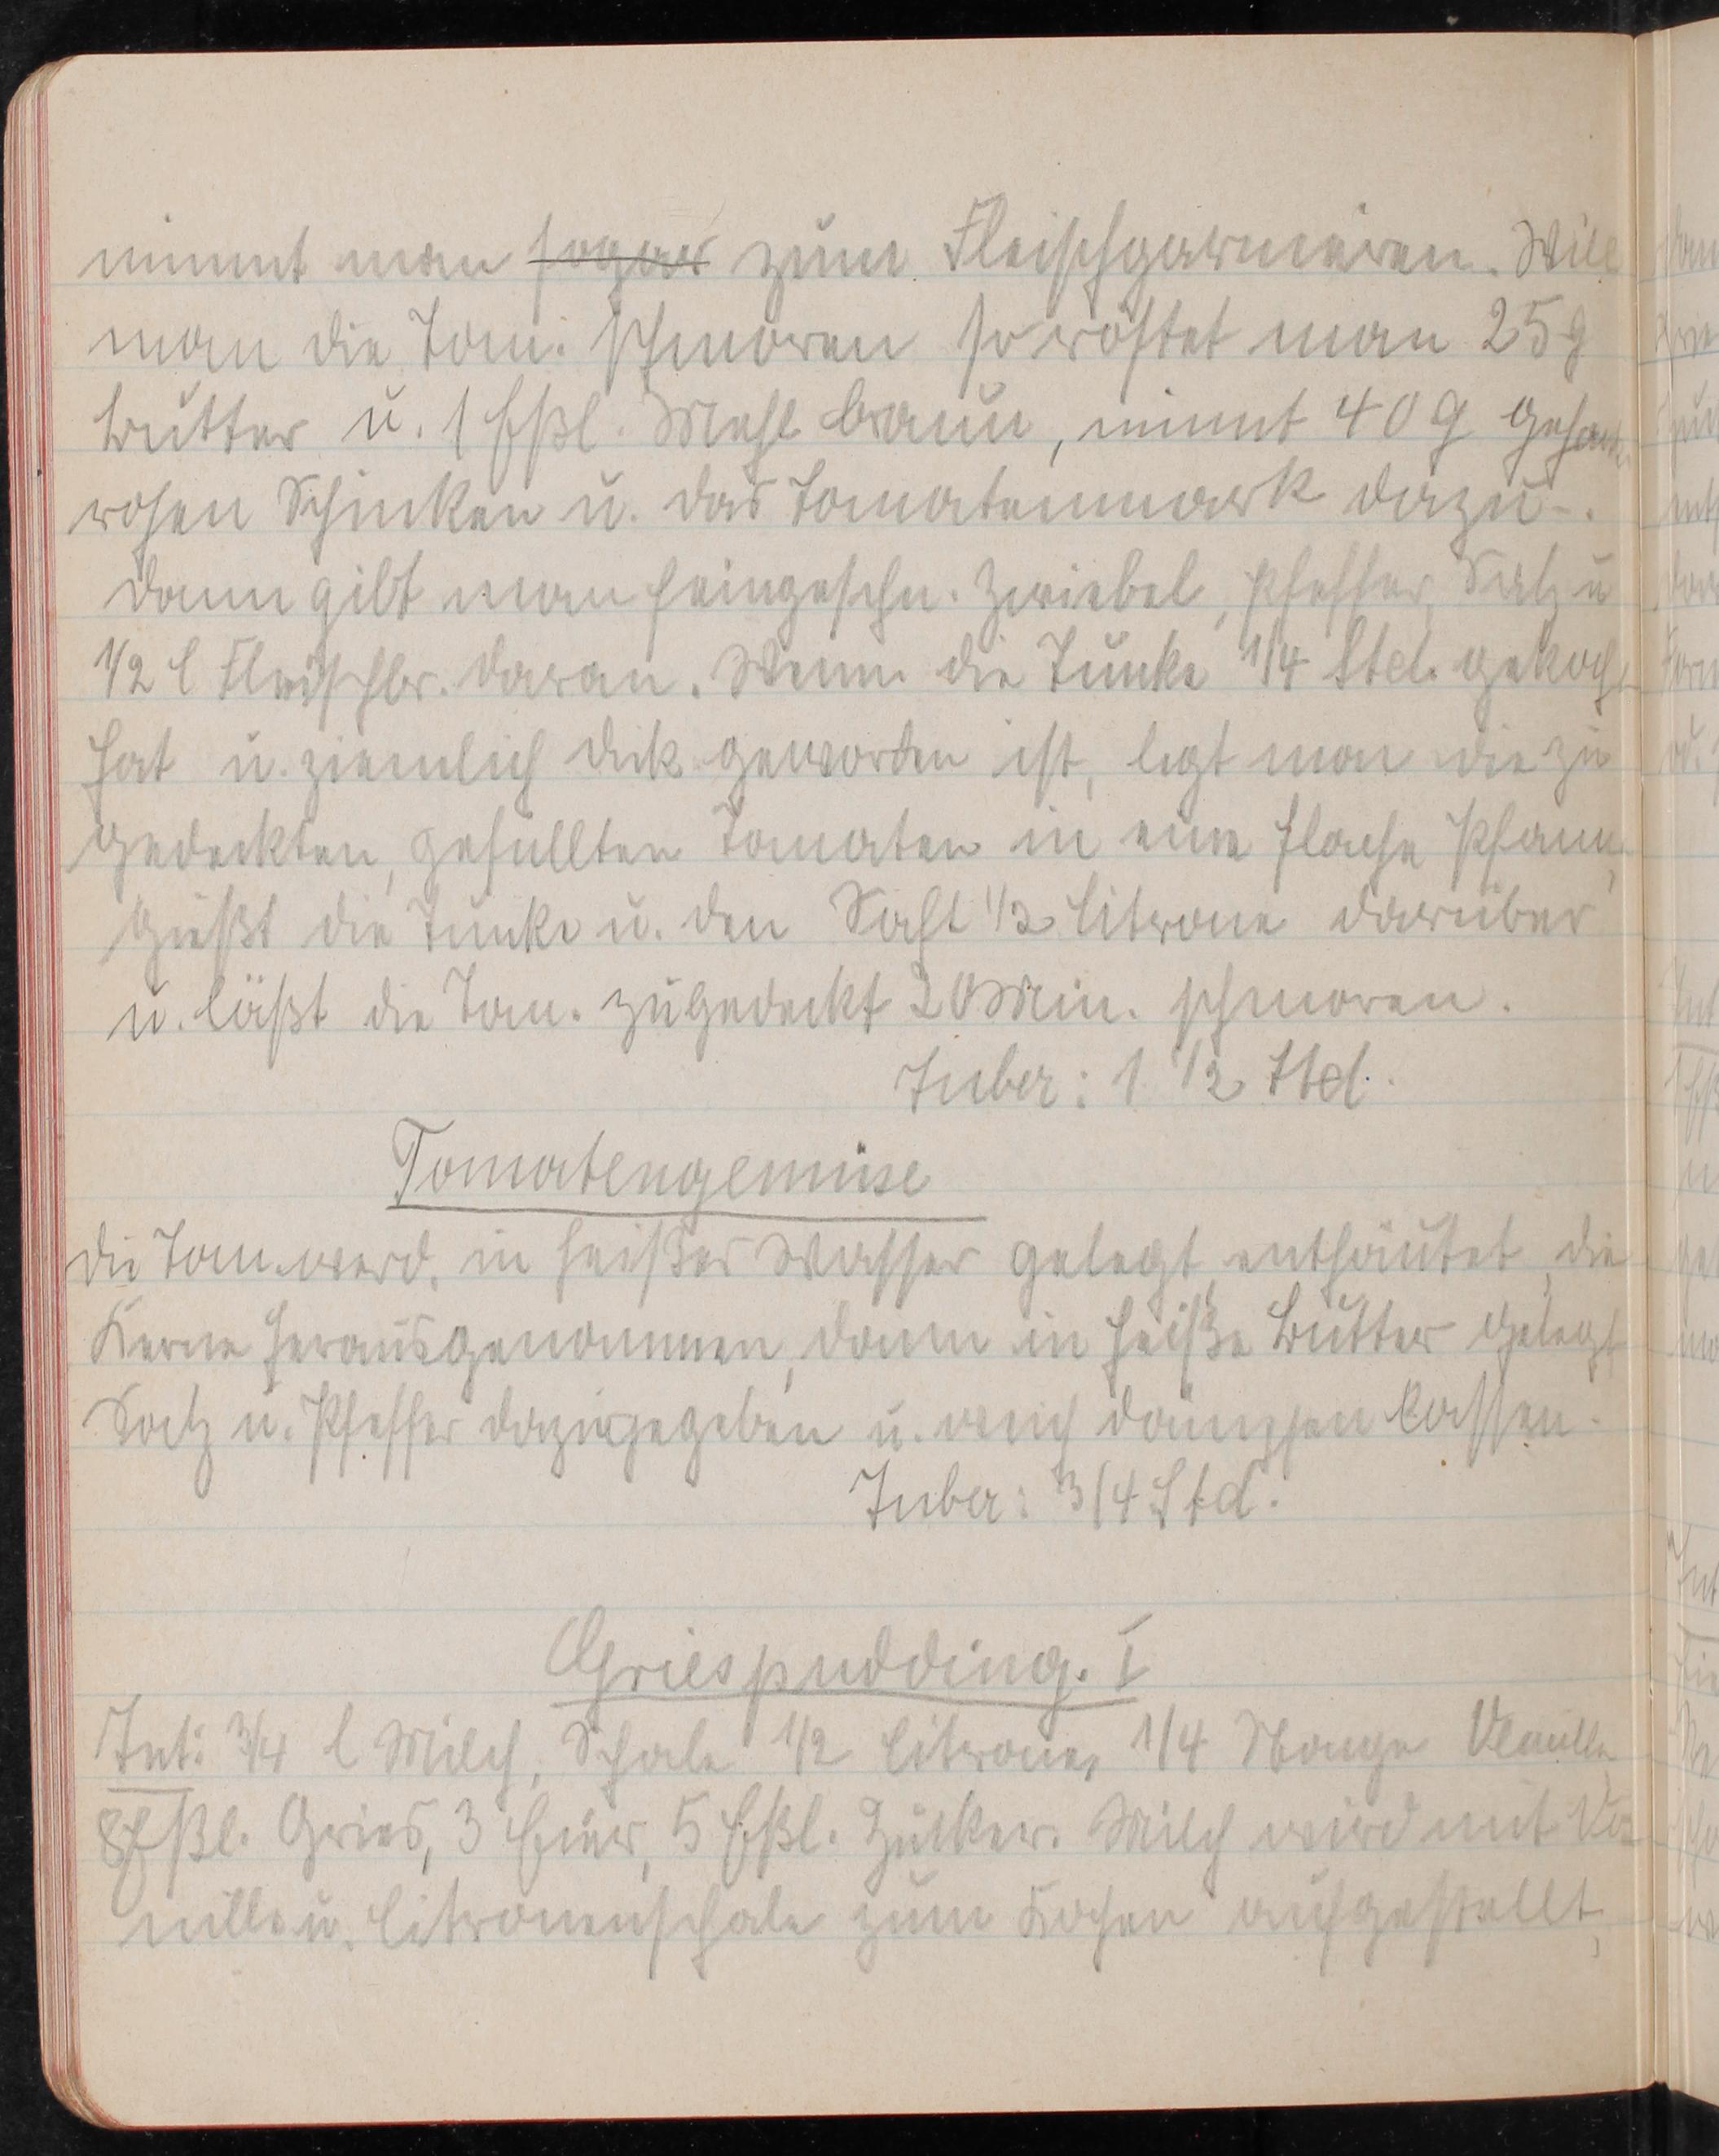 nimmt man sogar zum Fleischgarnieren. Will
man die Tom. schmoren so röstet man 25 g
Butter u. 1 Eßl. Mehl braun, nimmt 40 g
rohen Schinken u. das Tomatenmark dazu.
dann gibt man feingeschn. Zwiebel, Pfeffer, Salz u
1/2 l Fleischbr. daran. Wenn die Tunke 1/4 Std. gekocht
hat u. ziemlich dick geworden ist, legt man die zu
gedeckten, gefüllten Tomaten in eine flache Pfanne,
gießt die Tunke u. den Saft 1/2 Citrone darüber
u. läßt die Tom. zugedeckt 20 Min. schmoren.
Zuber: 1 1/2 Std.
Tomatengemüse
Die Tom. werd. in heißes Wasser gelegt, enthäutet, die
Kerne herausgenommen, dann in heiße Butter gelegt
Salz u. Pfeffer dazugegeben u. weich dämpfen lassen.
Zuber: 3/4 Std.
Griespudding. I
Zut: 3/4 l Milch, Schale 1/2 Citrone, 1/4 Stange Vanille,
8 Eßl. Gries, 3 Eier, 5 Eßl. Zucker. Milch wird mit Va
nille u. Citronenschale zum Kochen aufgestellt,